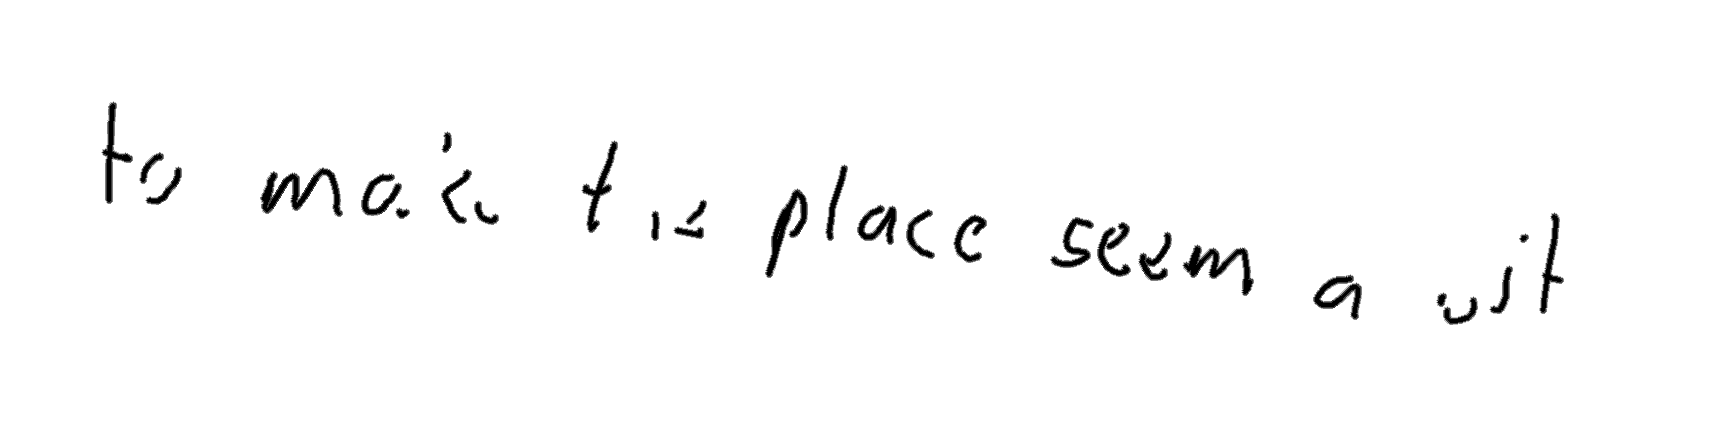 to make this place seem a bit